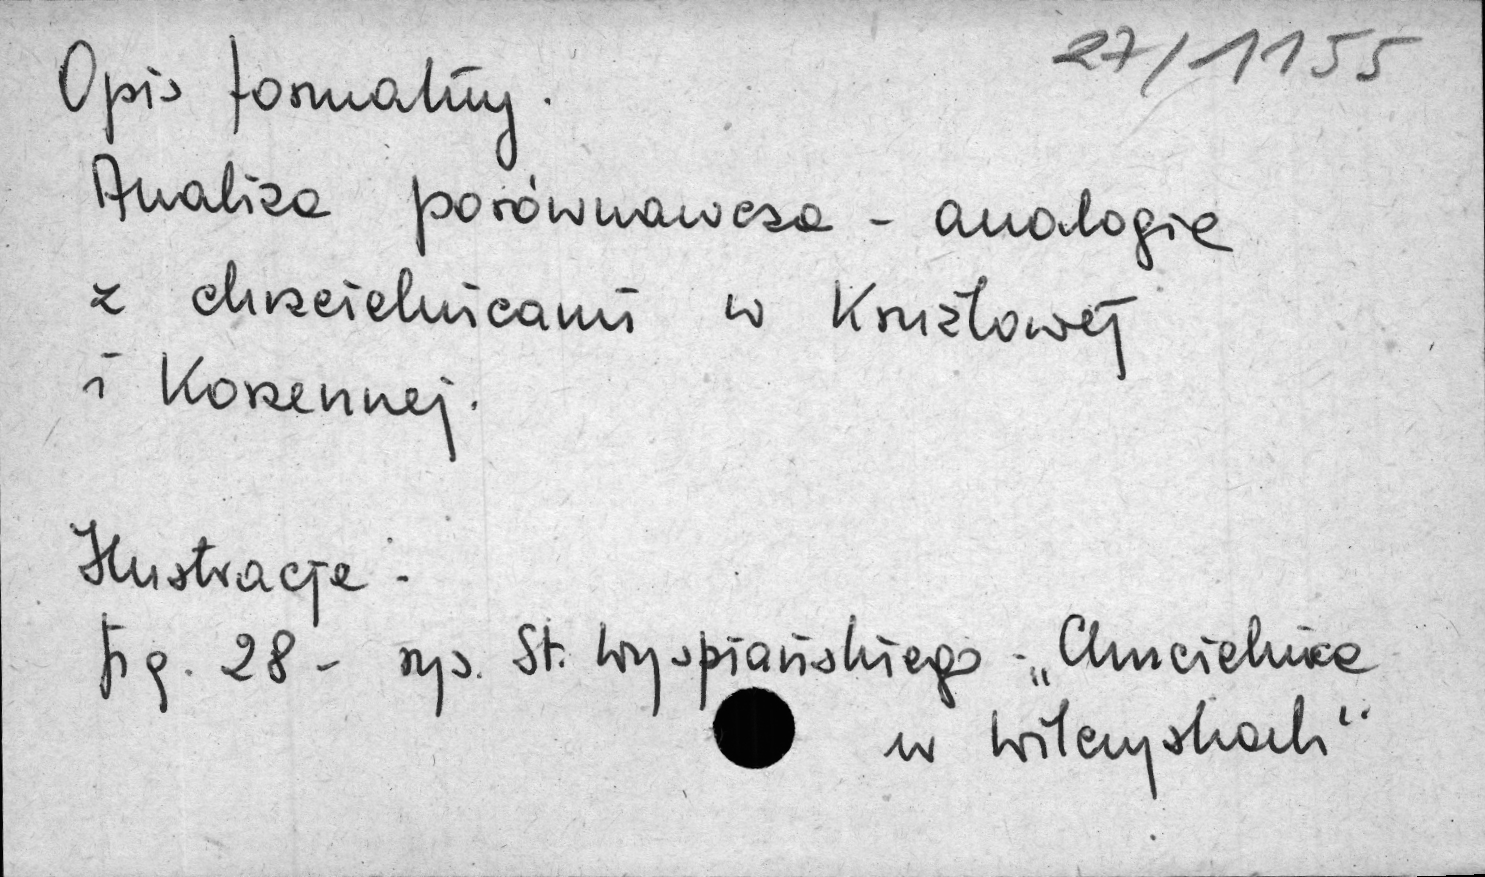 27/1155
Opis formalny.
Analiza porównawcza - analogie
z chrzcielnicami w Krużlowej
i Korzennej.
Ilustracje:
Fig. 28 - rys. St. Wyspiańskiego - „Chrzcielnica
w Wilczyskach“